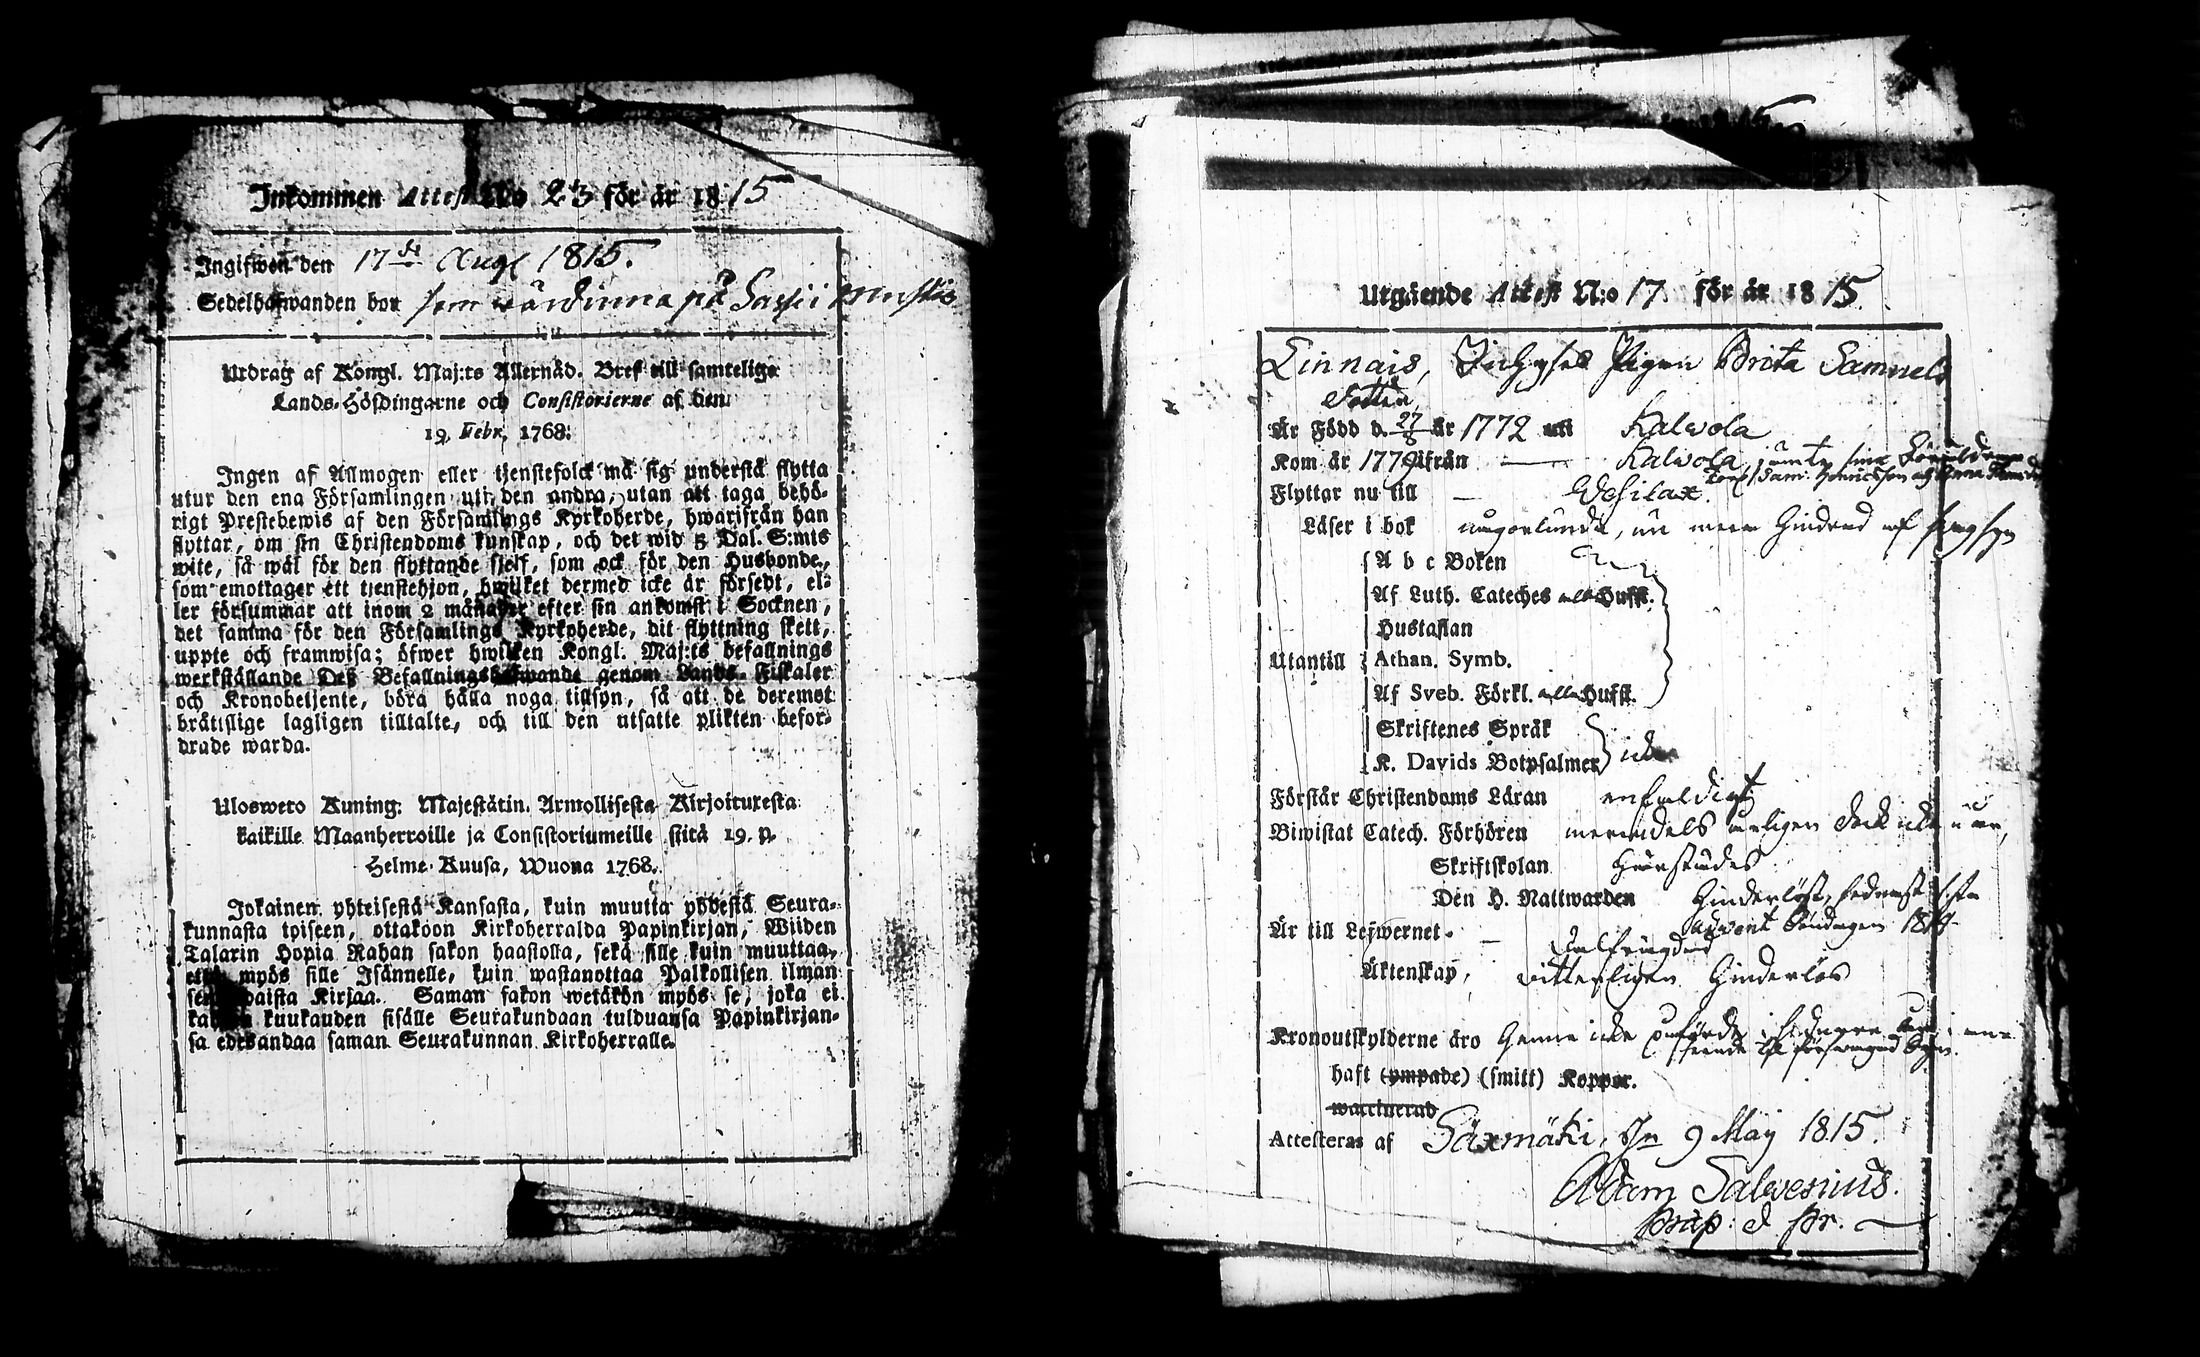 Inkommen Attest No 23 för år 1815
Ingifwen den 17de Aug 1815.
Sedelhafwanden bor som wärdinna på
Utdrag af Kongl. Maj:ts Allernåd. Bref till samtelige
Lands-Höfdingarne och Consistorierne af den
19. Febr. 1768.
Ingen af Allmogen eller tjenstefolck må sig understå flytta
utur den ena Församlingen uti den andra, utan att taga behö-
rigt Prestebewis af den Församlings Kyrkoherde, hwarifrån han
flyttar, om sin Christendoms kunskap, och det wid 5 Dal. S:mts
wite, så wäl för den flyttande sjelf, som ock för den Husbonde,
som emottager ett tjenstehjon, hwilket dermed icke är försedt, el-
ler försummar att inom 2 månader efter sin ankomst i Socknen,
det samma för den Församlings Kyrkoherde, dit flyttning skett,
uppte och framwisa; öfwer hwilken Kongl. Maj:ts befallnings
werkställande Deß Befallningshafwande genom Lands-Fiskaler
och Kronobetjente, böra hålla noga tillsyn, så att de deremot
brätislige lagligen tilltalte, och till den utsatte plikten befor-
drade warda.
Ulosweto Kuning: Majestätin. Armollisesta Kirjoituresta
kaikille Maanherroille ja Consistoriumeille siitä 19. p.
Helme-Kuusa, Wuona 1768.
Jokainen yhteisestä Kansasta, kuin muutta yhdestä Seura-
kunnasta tpiseen, ottakoon Kirkoherralda Papinkirjan, Wiiden
Talarin Hopia Rahan sakon haastolla, sekä sille kuin muuttaa,
että myös sille Isännelle, kuin wastanottaa Palkollisen ilman
Kirjaa. Saman sakon wetäkön myös se, joka ei
kuukauden sisälle Seurakundaan tulduansa Papinkirjan-
sa edesandaa saman Seurakunnan Kirkoherralle.
Utgående Attest N:o 17 för år 1815.
Linnais, Inhyses Pigan Brita Samuels
dotter
Är Född d. 27/8 år 1772 uti Kalvola
Kom år 1779 ifrån — Kalvola, jämte sina Föräldrar
Flyttar nu till — Wesilax.
Läser i bok någorlunda, nu mera hindrad af
A b c Boken
Af Luth. Cateches alla Hufst.
Hustaflan
Utantill Athan. Symb.
Af Sveb. Förkl. alla Hufst.
Skriftenes Språk
K. Davids Botpsalmer icke
Förstår Christendoms Läran enfaldigt
Biwistat Catech. Förhören merendels årligen dock icke i år,
Skriftskolan
Den H. Nattwarden Hinderlöst, sednast 1sta
Advent Söndagen 1814.
Är till Lefwernet — Oalfrägdad
Äktenskap, witterligen Hinderlös
Kronoutskylderne äro henne icke påförde
haft (ympade) (smitt) Koppor.
waccinerad
Attesteras af Säxmäki, d. 9 Maij 1815.
Adam Salvenius.
Præp: & Pr.